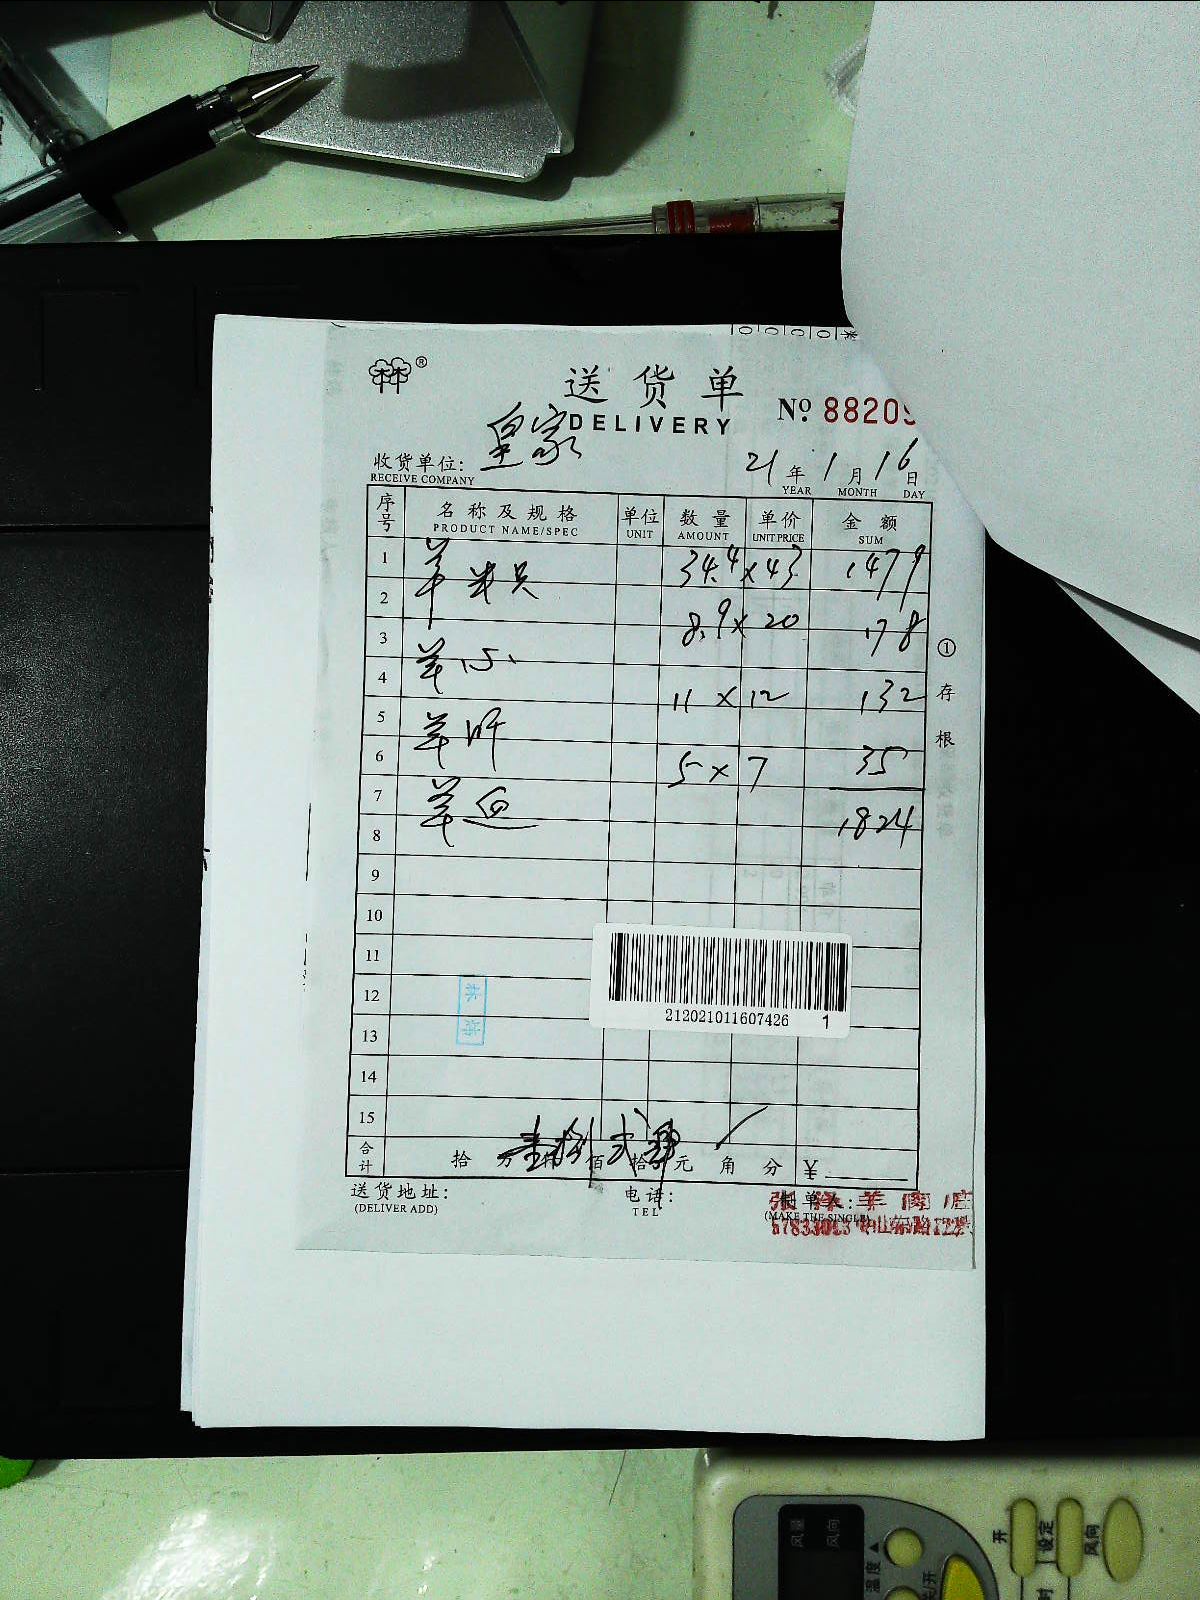 送货单
DELIVERY
No 8820
收货单位: 皇家
RECEIVE COMPANY
21 年 1 月 16 日
YEAR MONTH DAY
序号 名称及规格 单位 数量 单价 金额
PRODUCT NAME/SPEC UNIT AMOUNT UNIT PRICE SUM
1 羊 34.4 × 43 1479
2
3 羊心 8.9 × 20 178
4 11 × 12 132
5 羊肝
6 5 × 7 35
7 羊血 1824
8
9
10
11
12
13
14
15
212021011607426 1
合计 壹 捌 佰 贰 拾 肆 元 角 分 ¥
送货地址: 电话: 制单人:
(DELIVER ADD) TEL (MAKE THE SINGLE)
羊肉店
57833013
① 存根
风量 风向
温度
开/关
开
设定
风向
时